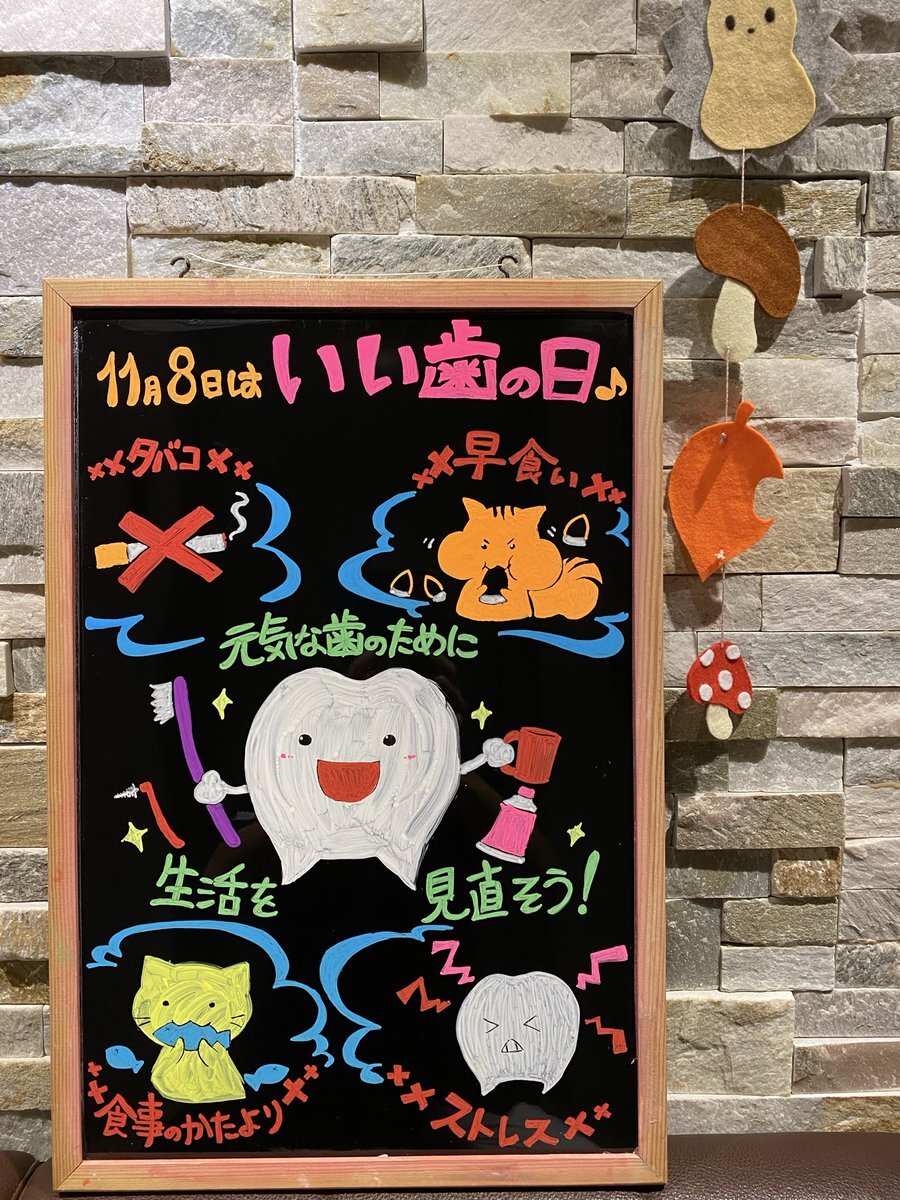 11月8日は いい歯の日♪
××タバコ××
××早食い××
元気な歯のために
生活を 見直そう!
××食事のかたより××
××ストレス××